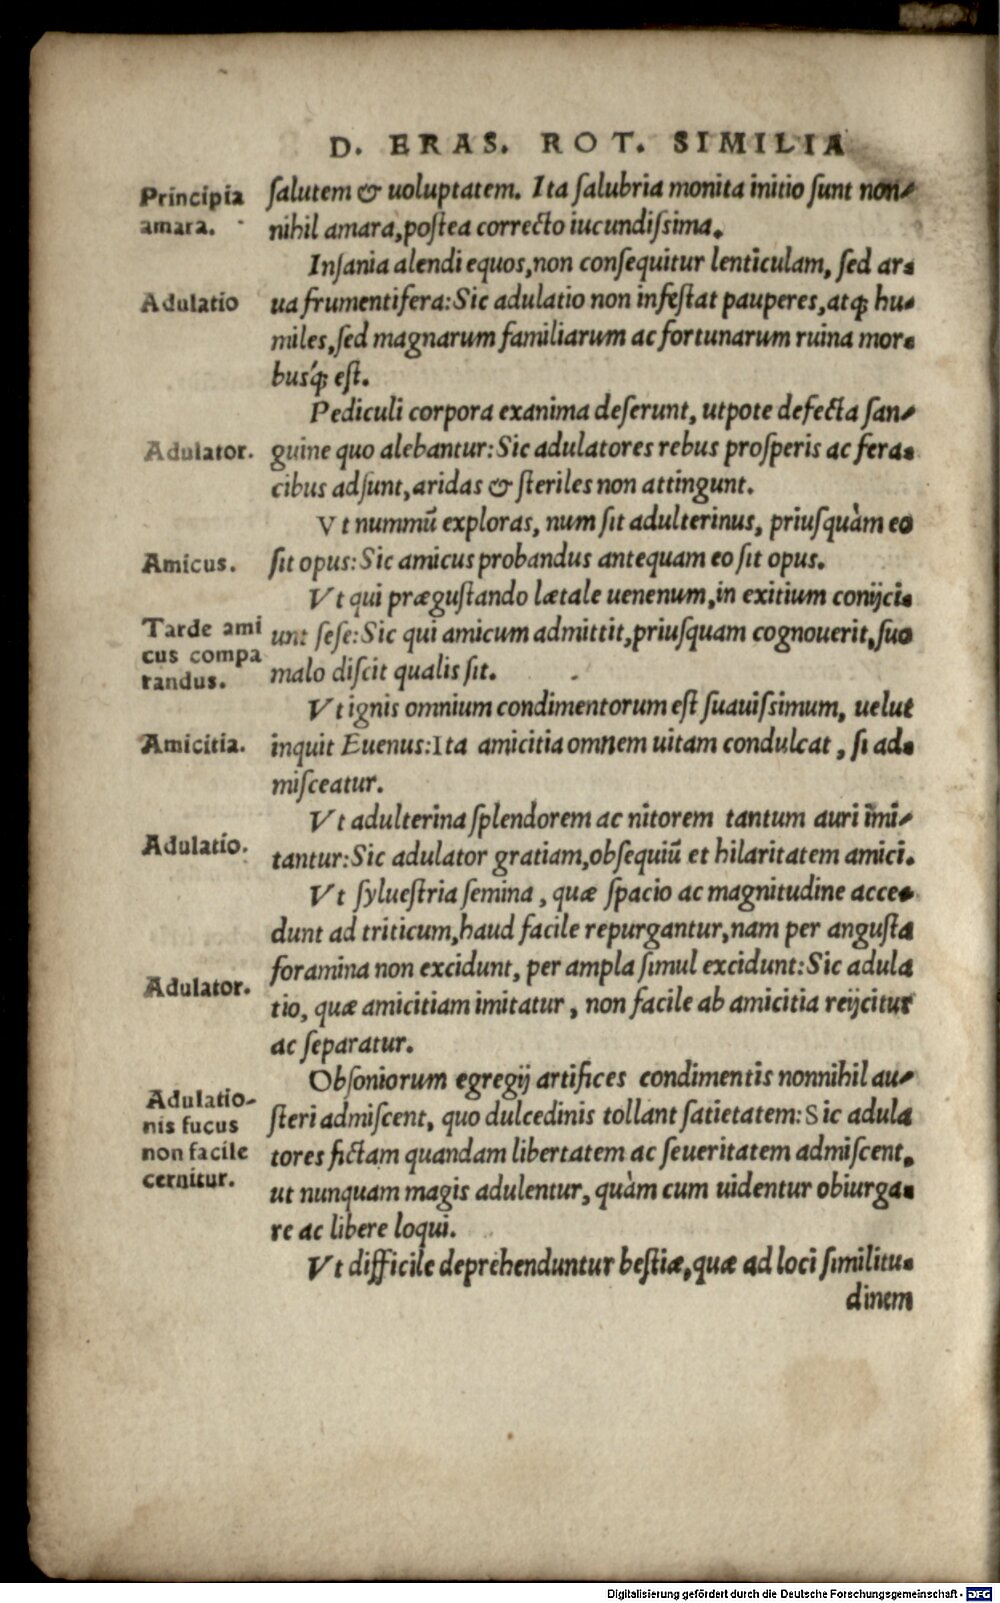 D. ERAS. ROT. SIMILIA
Principia
amara.
ſalutem & uoluptatem. Ita ſalubria monita initio ſunt non-
nihil amara, poſtea correcto iucundiſsima.
Inſania alendi equos, non conſequitur lenticulam, ſed ar-
Adulatio
ua frumentifera: Sic adulatio non infeſtat pauperes, atqꝫ hu-
miles, ſed magnarum familiarum ac fortunarum ruina mor-
busq́ꝫ eſt.
Pediculi corpora exanima deſerunt, utpote defecta ſan-
Adulator.
guine quo alebantur: Sic adulatores rebus proſperis ac fera-
cibus adſunt, aridas & ſteriles non attingunt.
Vt nummū exploras, num ſit adulterinus, priuſquàm eo
Amicus.
ſit opus: Sic amicus probandus antequam eo ſit opus.
Vt qui præguſtando lætale uenenum, in exitium conijci-
Tarde ami
cus compa
randus.
unt ſeſe: Sic qui amicum admittit, priuſquam cognouerit, ſuo
malo diſcit qualis ſit.
Vt ignis omnium condimentorum eſt ſuauiſsimum, uelut
Amicitia.
inquit Euenus: Ita amicitia omnem uitam condulcat, ſi ad-
miſceatur.
Vt adulterina ſplendorem ac nitorem tantum auri imi-
Adulatio.
tantur: Sic adulator gratiam, obſequiū et hilaritatem amici.
Vt ſylueſtria ſemina, quæ ſpacio ac magnitudine acce-
dunt ad triticum, haud facile repurgantur, nam per anguſta
foramina non excidunt, per ampla ſimul excidunt: Sic adula
Adulator.
tio, quæ amicitiam imitatur, non facile ab amicitia reijcitur
ac ſeparatur.
Obſoniorum egregij artifices condimentis nonnihil au-
Adulatio-
nis fucus
non facile
cernitur.
ſteri admiſcent, quo dulcedinis tollant ſatietatem: Sic adula
tores fictam quandam libertatem ac ſeueritatem admiſcent,
ut nunquam magis adulentur, quàm cum uidentur obiurga-
re ac libere loqui.
Vt difficile deprehenduntur beſtiæ, quæ ad loci ſimilitu-
dinem
Digitalisierung gefördert durch die Deutsche Forschungsgemeinschaft - DFG